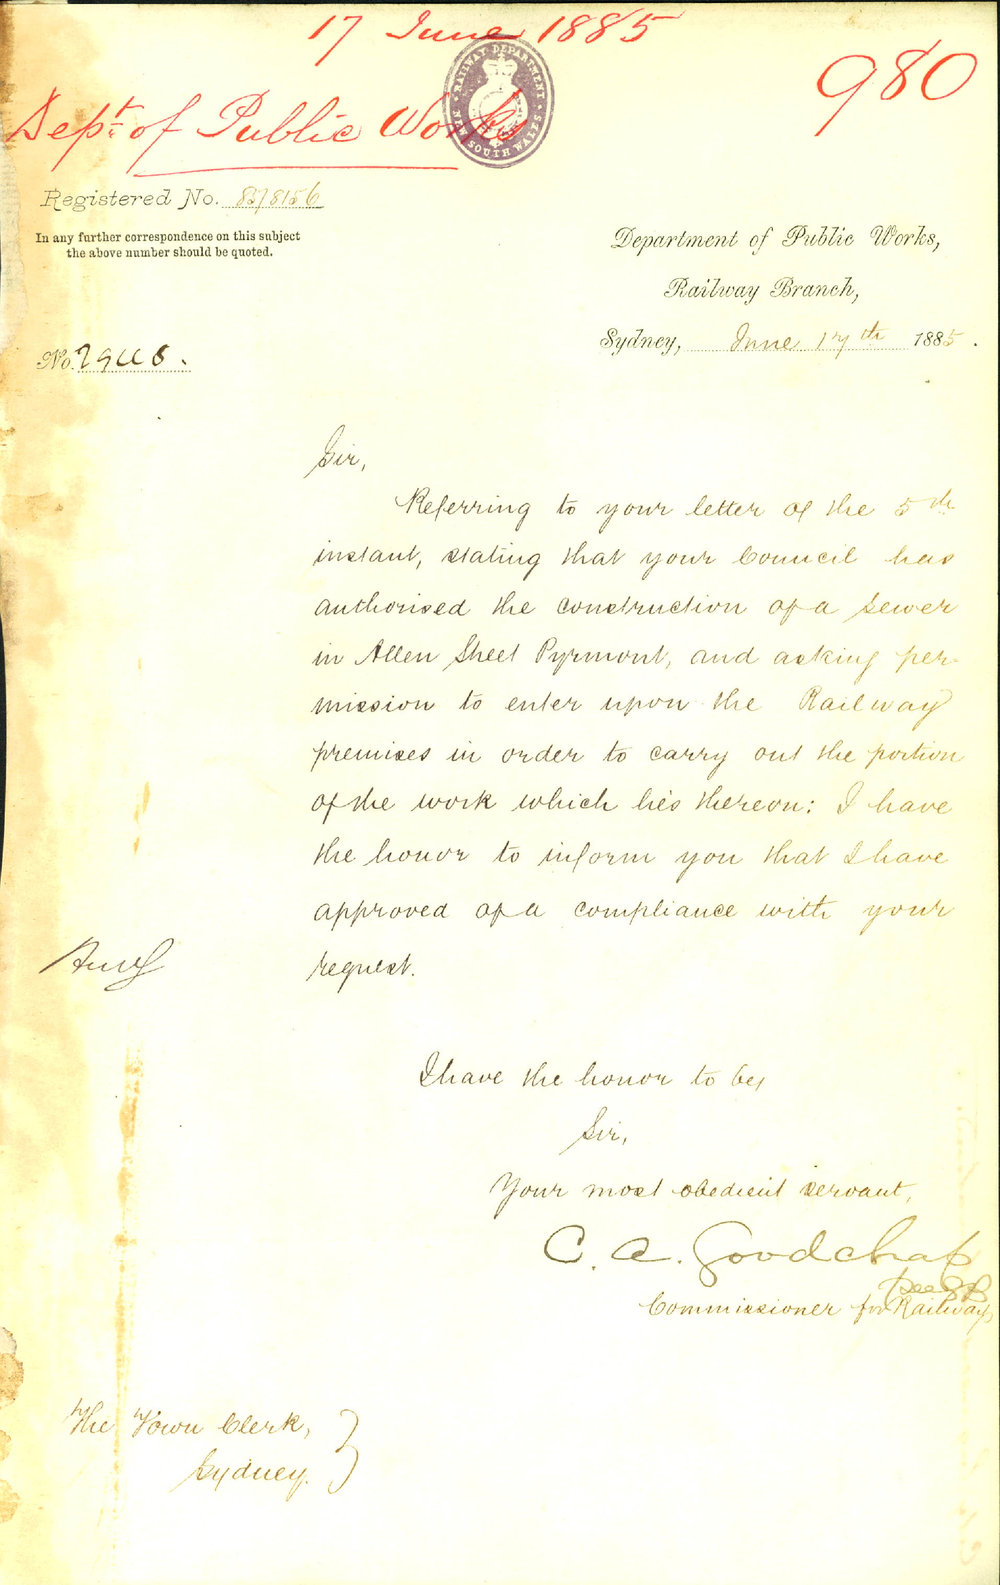 17 June 1885
980
Dept. of Public Works
RAILWAY DEPARTMENT
NEW SOUTH WALES
Registered No. 85/8156
In any further correspondence on this subject
the above number should be quoted.
Department of Public Works,
Railway Branch,
Sydney, June 17th 1885.
No.
Sir,
Referring to your letter of the 5th
instant, stating that your Council has
authorised the construction of a sewer
in Allen Street Pyrmont, and asking per-
mission to enter upon the Railway
premises in order to carry out the portion
of the work which lies thereon: I have
the honor to inform you that I have
approved of a compliance with your
request.
I have the honor to be,
Sir,
Your most obedient servant,
C. A. Goodchap
Commissioner for Railways
The Town Clerk,
Sydney.